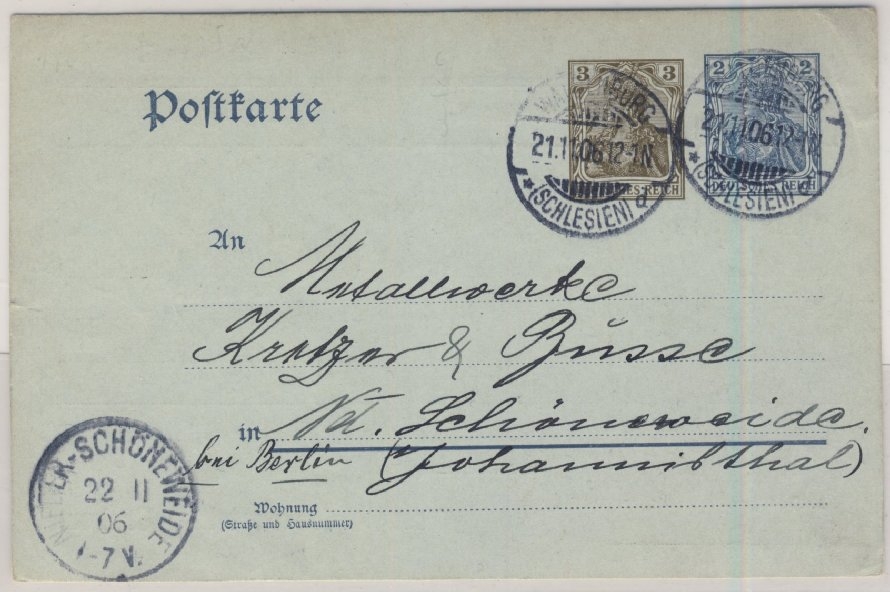 Postkarte
3 3
REICH
2 2
DEUTSCHES REICH
BURG
21.11.06.12-1N
* (SCHLESIEN) d
21.11.06.12-1N
* (SCHLESIEN) d
An
Metallwerke
Kretzer & Busse
in Nd. Schöneweide.
bei Berlin (Johannisthal)
Wohnung
(Straße und Hausnummer)
NIEDER-SCHÖNEWEIDE
22 11
06
-7V.